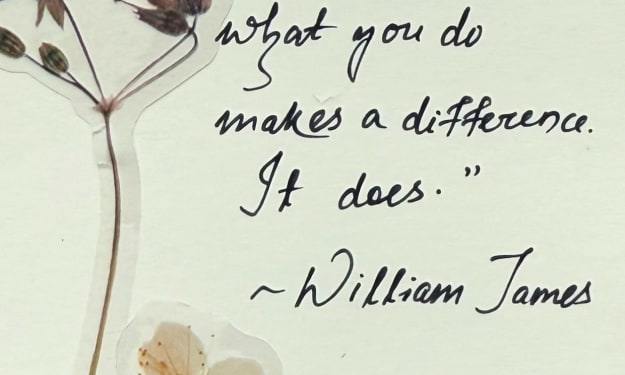 what you do
makes a difference.
It does."
~William James